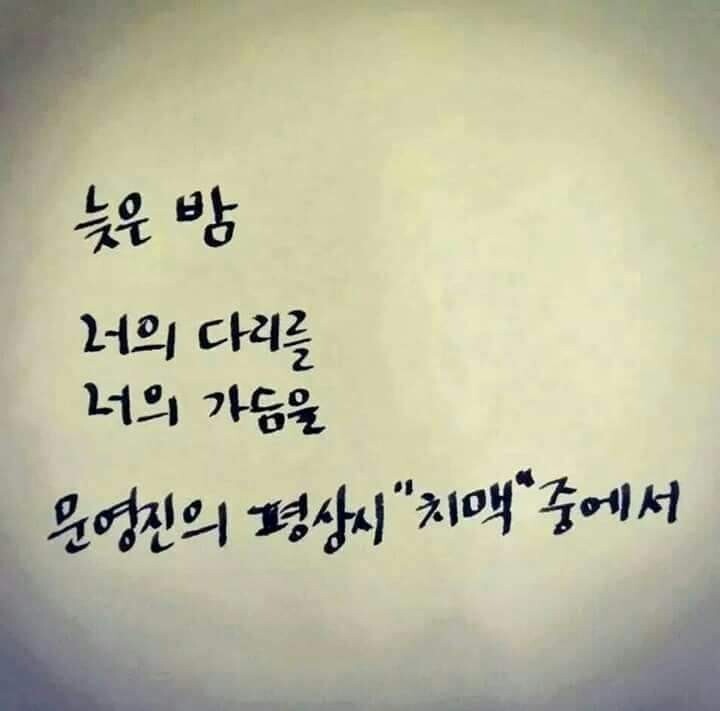 늦은 밤
너의 다리를
너의 가슴을
문영진의 평상시 "치맥" 중에서